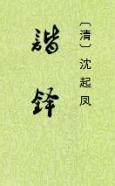 谐铎
〔清〕沈起凤